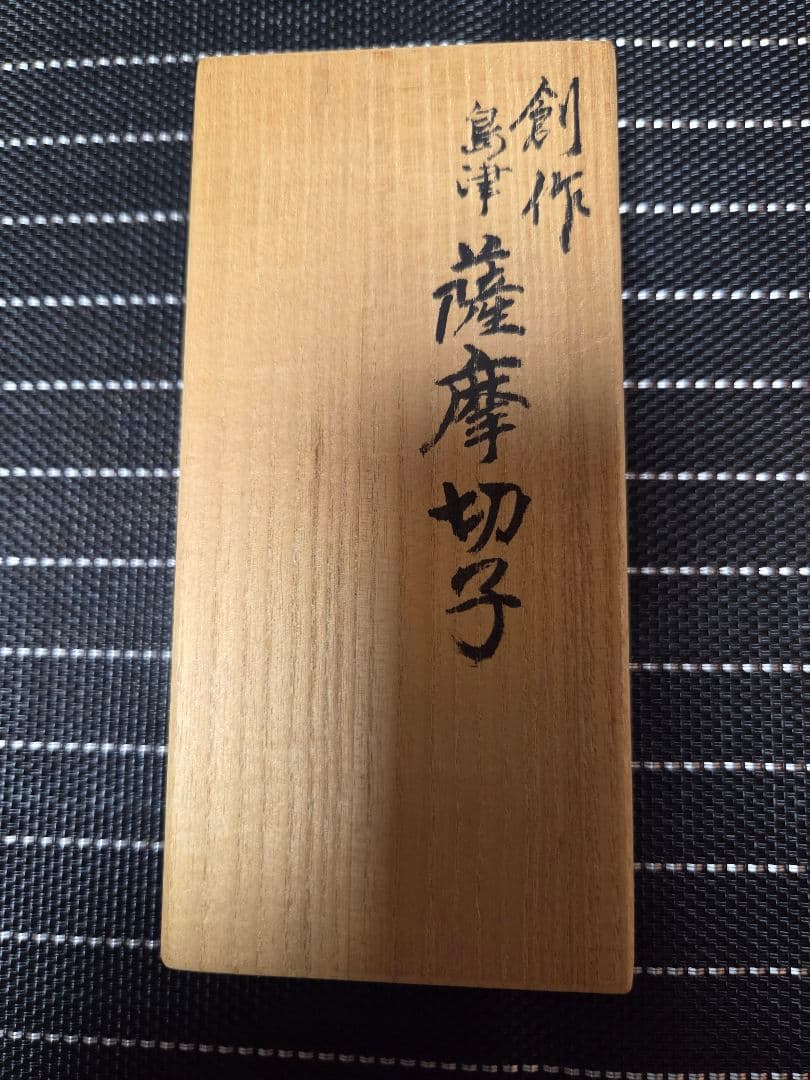 創作
島津
薩摩切子